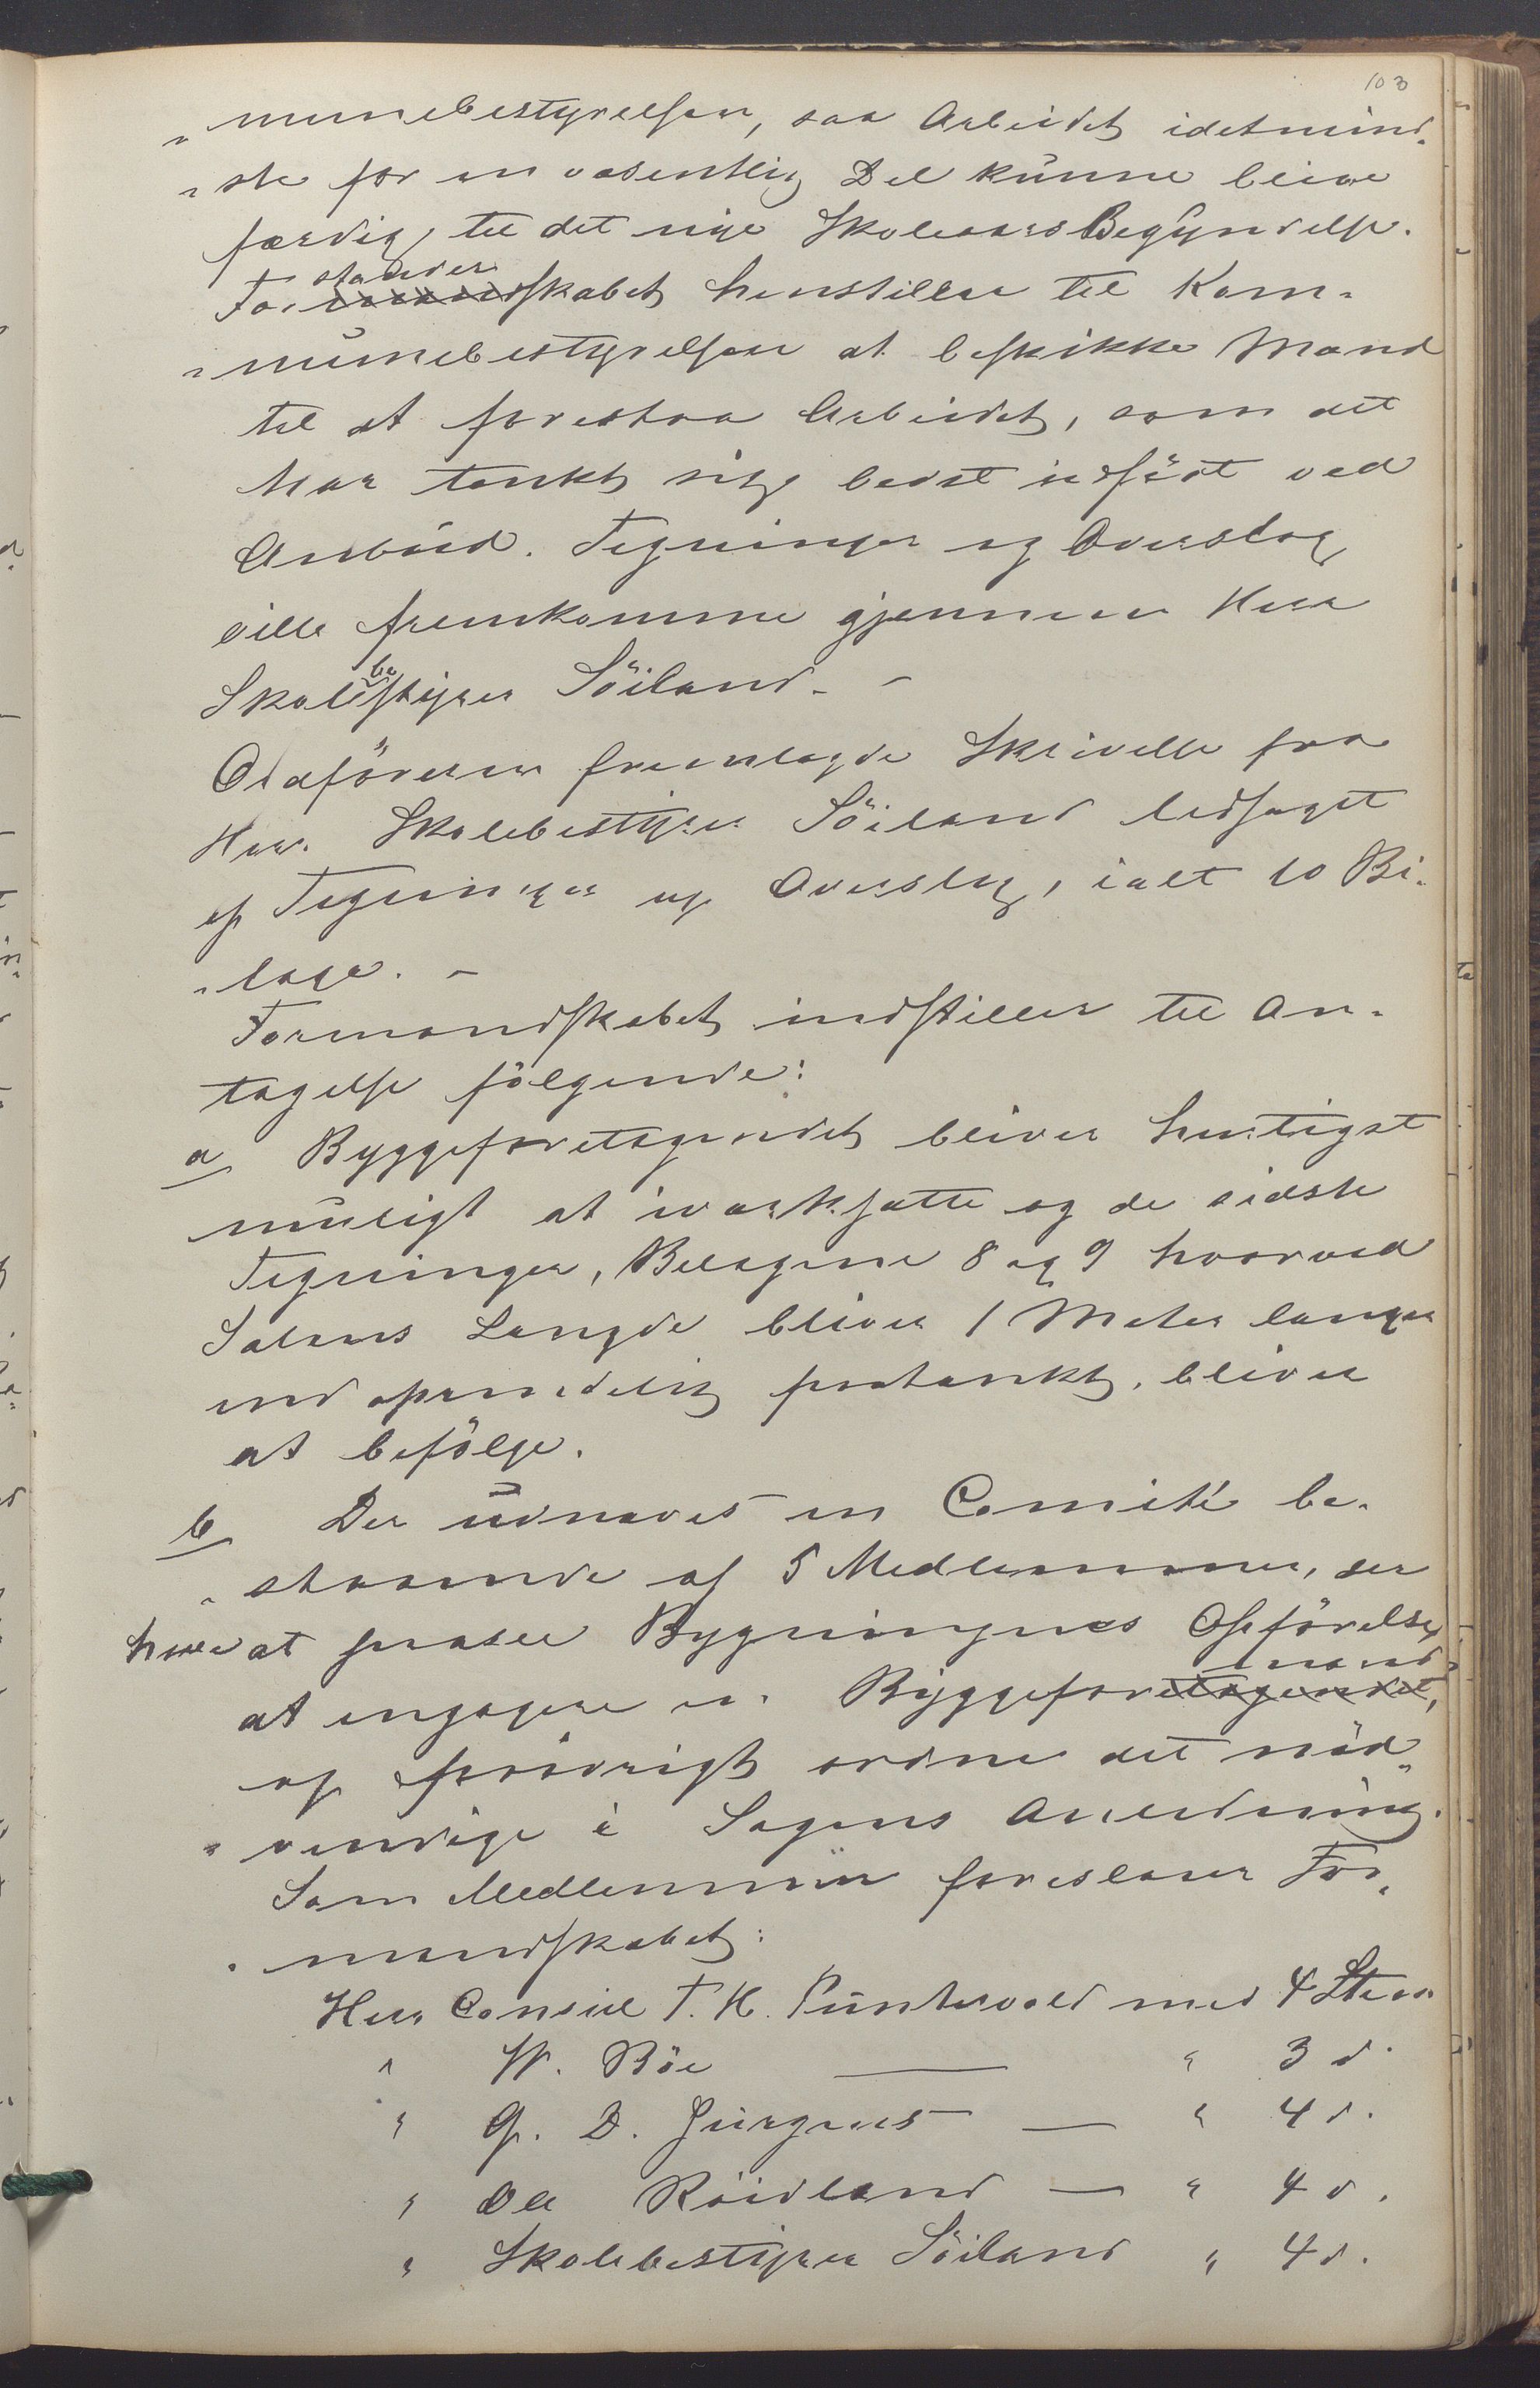 103
munebestyrelsen, saa Arbeidet idetmind-
ste for en væsentlig Del kunne blive
færdig til det nye Skoleaars Begyndelse.
Forstanderskabet henstiller til Kom-
munebestyrelsen at beskikke Mand
til at forestaa Arbeidet, som det
har tænkt sig bedst udført ved
Anbud. Tegninger og Overslag
ville fremkomme gjennem Herr
Skolebestyrer Söiland. -
Ordföreren fremlagde Skrivelse fra
Herr Skolebestyrer Söiland ledsaget
af Tegninger og Overslag, ialt 10 Bi-
lage. -
Formandskabet indstiller til An-
tagelse fölgende:
a Byggeforetagendet bliver hurtigst
muligt at iværksætte og de sidste
Tegninger, Bilagene 8 og 9 hvorved
Salens Længde bliver 1 Meter længer
end oprindelig paatænkt, bliver
at befölge.
b Der udnævnes en Comité be-
staaende af 5 Medlemmer, der
have at forestaa Bygningens Opförelse,
at engagere en Byggeformand,
og forövrigt ordne det nöd-
vendige i Sagens Anledning.
Som Medlemmer foreslaaer For-
mandskabet:
Herr Consul T. H. Puntervold med 4 Stem
" W. Böe — " 3 d.
" G. D. Jürgens — " 4 d.
" Ole Röidland — " 4 d.
" Skolebestyrer Söiland " 4 d.